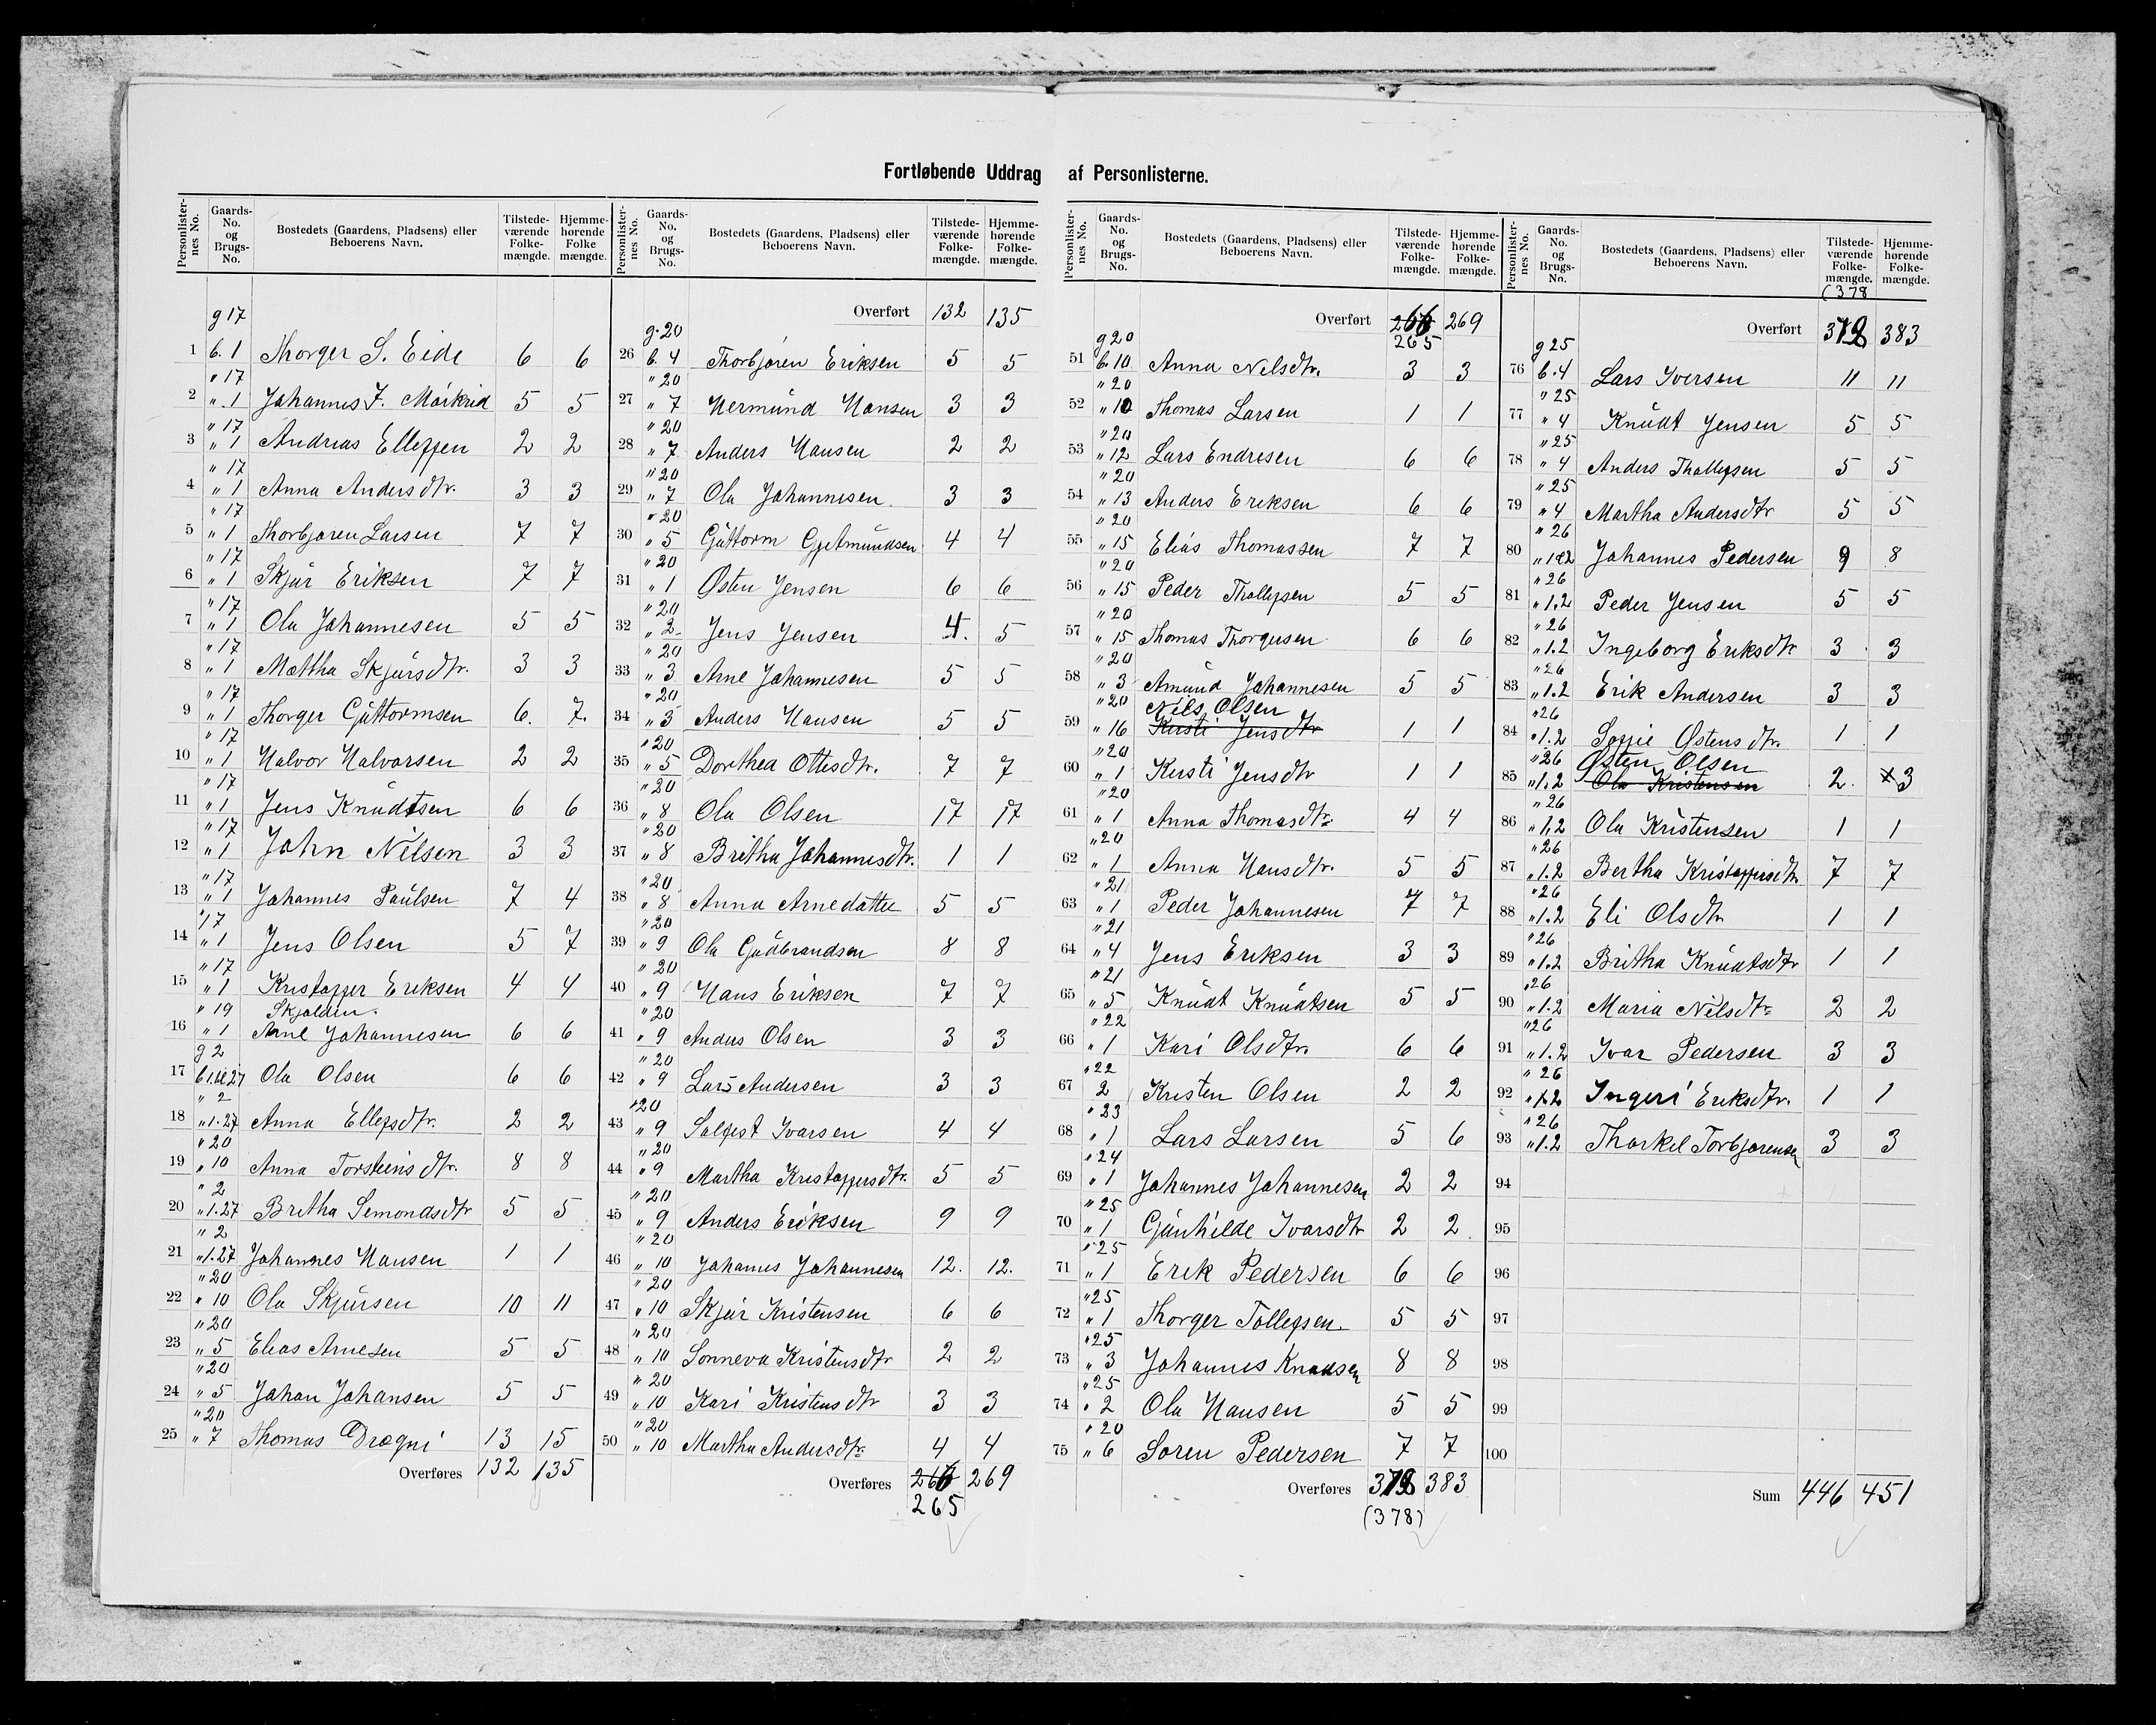 Fortløbende Uddrag af Personlisterne.
Personlister-nes No. Gaards-No. og Brugs-No. Bostedets (Gaardens, Pladsens) eller Beboerens Navn. Tilstede-værende Folke-mængde. Hjemme-hørende Folke mængde.
g 17
1 b. 1 Thorger S. Eide 6 6
" 17
2 " 1 Johannes J. Mørkrid 5 5
" 17
3 " 1 Andreas Ellefsen 2 2
" 17
4 " 1 Anna Andersdtr. 3 3
" 17
5 " 1 Thorbjøren Larsen 7 7
" 17
6 " 1 Skjur Eriksen 7 7
" 17
7 " 1 Ola Johannesen 5 5
" 17
8 " 1 Martha Skjursdtr. 3 3
" 17
9 " 1 Thorger Guttormsen 6. 7.
" 17
10 " 1 Halvor Halvorsen 2 2
" 17
11 " 1 Jens Knudtsen 6 6
" 17
12 " 1 John Nilsen 3 3
" 17
13 " 1 Johannes Paulsen 7 4
" 17
14 " 1 Jens Olsen 5 7
" 17
15 " 1 Kristoffer Eriksen 4 4
" 19 Skjolden.
16 " 1 Arne Johannesen 6 6
g 2
17 b 1.27 Ola Olsen 6 6
" 2
18 " 1.27 Anna Ellefsdtr. 2 2
" 20
19 " 10 Anna Torsteinsdtr. 8 8
" 2
20 " 1.27 Britha Semondsdtr 5 5
" 2
21 " 1.27 Johannes Hansen 1 1
" 20
22 " 10 Ola Skjursen 10 11
" 20
23 " 5 Elias Arnesen 5 5
" 20
24 " 5 Johan Johansen 5 5
" 20
25 " 7 Thomas Drægni 13 15
Overføres 132 135
Personlister-nes No. Gaards-No. og Brugs-No. Bostedets (Gaardens, Pladsens) eller Beboerens Navn. Tilstede-værende Folke-mængde. Hjemme-hørende Folke-mængde.
Overført 132 135
g. 20
26 b. 4 Thorbjøren Eriksen 5 5
" 20
27 " 7 Hermund Hansen 3 3
" 20
28 " 7 Anders Hansen 2 2
" 20
29 " 7 Ola Johannesen 3 3
" 20
30 " 5 Guttorm Gjetmundsen 4 4
" 20
31 " 1 Østen Jensen 6 6
" 20
32 " 2 Jens Jensen 4. 5
" 20
33 " 3 Arne Johannesen 5 5
" 20
34 " 3 Anders Hansen 5 5
" 20
35 " 5 Dorthea Ottesdtr. 7 7
" 20
36 " 8 Ola Olsen 17 17
" 20
37 " 8 Britha Johannesdtr. 1 1
" 20
38 " 8 Anna Arnedatter 5 5
" 20
39 " 9 Ola Gudbrandsen 8 8
" 20
40 " 9 Hans Eriksen 7 7
" 20
41 " 9 Anders Olsen 3 3
" 20
42 " 9 Lars Andersen 3 3
" 20
43 " 9 Salfest Ivarsen 4 4
" 20
44 " 9 Martha Kristoffersdtr. 5 5
" 20
45 " 9 Anders Eriksen 9 9
" 20
46 " 10 Johannes Johannesen 12. 12.
" 20
47 " 10 Skjur Kristensen 6 6
" 20
48 " 10 Sonneva Kristensdtr 2 2
" 20
49 " 10 Kari Kristensdtr 3 3
" 20
50 " 10 Martha Andersdtr 4 4
Overføres 266 269
265
Personlister-nes No. Gaards-No. og Brugs-No. Bostedets (Gaardens, Pladsens) eller Beboerens Navn. Tilstede-værende Folke-mængde. Hjemme-hørende Folke-mængde.
Overført 266 269
265
g 20
51 b. 10 Anna Nelsdtr. 3 3
" 20
52 " 10 Thomas Larsen 1 1
" 20
53 " 12 Lars Endresen 6 6
" 20
54 " 13 Anders Eriksen 6 6
" 20
55 " 15 Elias Thomassen 7 7
" 20
56 " 15 Peder Thollefsen 5 5
" 20
57 " 15 Thomas Thorgersen 6 6
" 20
58 " 3 Amund Johannesen 5 5
" 20 Nils Olsen
59 " 16 Kersti Jensdtr 1 1
" 20
60 " 1 Kersti Jensdtr 1 1
" 20
61 " 1 Anna Thomasdtr 4 4
" 20
62 " 1 Anna Hansdtr. 5 5
" 21
63 " 1 Peder Johannesen 7 7
" 21
64 " 4 Jens Eriksen 3 3
" 21
65 " 5 Knudt Knudtsen 5 5
" 22
66 " 1 Kari Olsdtr. 6 6
" 22
67 2 Kristen Olsen 2 2
" 23
68 " 1 Lars Larsen 5 6
" 24
69 " 1 Johannes Johannesen 2 2
" 25
70 " 1 Gunhilde Ivarsdtr 2 2
" 25
71 " 1 Erik Pedersen 6 6
" 25
72 " 1 Thorger Tollefsen 5 5
" 25
73 " 3 Johannes Knudsen 8 8
" 25
74 " 2 Ola Hansen 5 5
" 20
75 " 6 Soren Pedersen 7 7
Overføres 379 383
(378)
Personlister-nes No. Gaards-No. og Brugs-No. Bostedets (Gaardens, Pladsens) eller Beboerens Navn. Tilstede-værende Folke-mængde. Hjemme-hørende Folke-mængde.
(378
Overført 379 383
g 25
76 b. 4 Lars Iversen 11 11
" 25
77 " 4 Knudt Jensen 5 5
" 25
78 " 4 Anders Thollefsen 5 5
" 25
79 " 4 Martha Andersdtr 5 5
" 26
80 " 1&2 Johannes Pedersen 9 8
" 26
81 " 1.2 Peder Jensen 5 5
" 26
82 " 1.2 Ingeborg Eriksdtr 3 3
" 26
83 " 1.2 Erik Andersen 3 3
" 26
84 " 1.2 Soffie Østensdtr. 1 1
" 26 Østen Olsen
85 " 1.2 Ola Kristensen 2. 3
" 26
86 " 1.2 Ola Kristensen 1 1
" 26
87 " 1.2 Bertha Kristoffersdtr 7 7
" 26
88 " 1.2 Eli Olsdtr 1 1
" 26
89 " 1.2 Britha Knudtsdtr 1 1
" 26
90 " 1.2 Maria Nilsdtr 2 2
" 26
91 " 1.2 Ivar Pedersen 3 3
" 26
92 " 1.2 Ingeri Eriksdtr. 1 1
" 26
93 " 1.2 Thorkel Torbjørensen 3 3
94
95
96
97
98
99
100
Sum 446 451